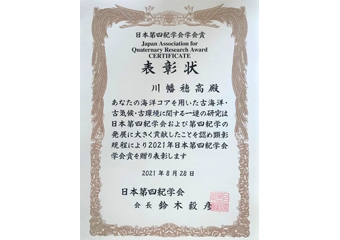 日本第四紀学会学会賞
Japan Association for
Quaternary Research Award
CERTIFICATE
表彰状
川幡穂高殿
あなたの海洋コアを用いた古海洋・
古気候・古環境に関する一連の研究は
日本第四紀学会および第四紀学の
発展に大きく貢献したことを認め顕彰
規程により2021年日本第四紀学会
学会賞を贈り表彰します
2021年8月28日
日本第四紀学会
会長 鈴木毅彦